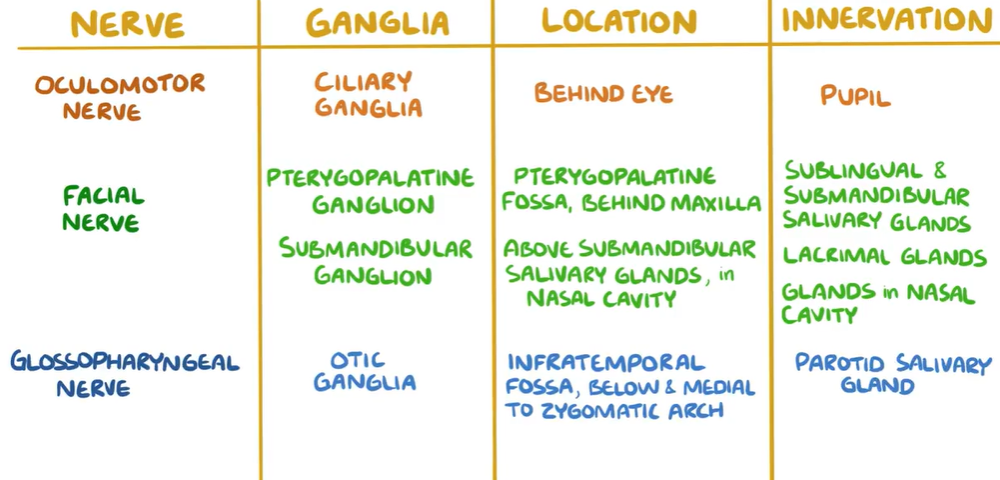 NERVE GANGLIA LOCATION INNERVATION
OCULOMOTOR
NERVE
CILIARY
GANGLIA
BEHIND EYE
PUPIL
FACIAL
NERVE
PTERYGOPALATINE
GANGLION
PTERYGOPALATINE
FOSSA, BEHIND MAXILLA
SUBMANDIBULAR
GANGLION
ABOVE SUBMANDIBULAR
SALIVARY GLANDS, in
NASAL CAVITY
SUBLINGUAL &
SUBMANDIBULAR
SALIVARY GLANDS
LACRIMAL GLANDS
GLANDS in NASAL
CAVITY
GLOSSOPHARYNGEAL
NERVE
OTIC
GANGLIA
INFRATEMPORAL
FOSSA, BELOW & MEDIAL
TO ZYGOMATIC ARCH
PAROTID SALIVARY
GLAND